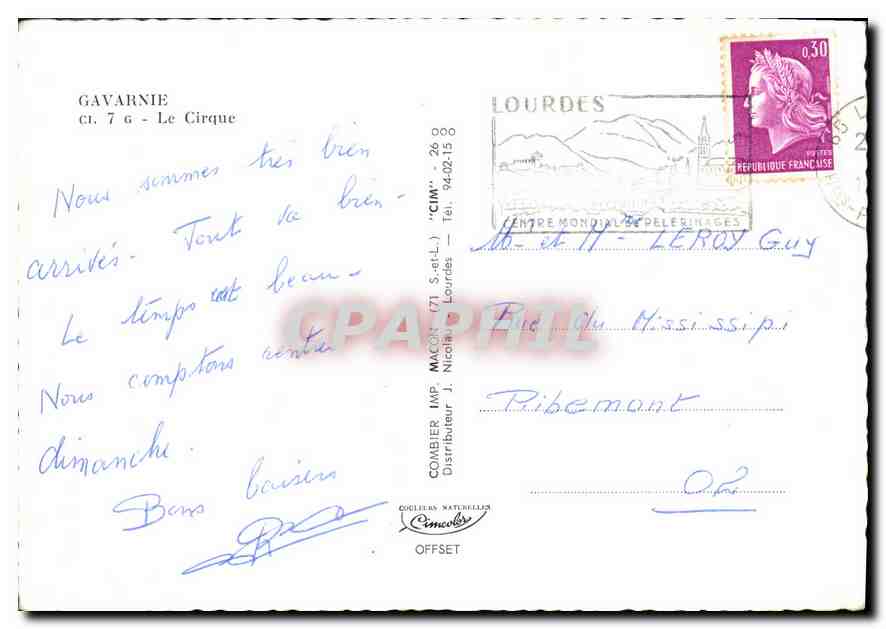 GAVARNIE
CI. 7 G - Le Cirque
Nous sommes très bien
arrivés. Tout va bien.
Le temps est beau.
Nous comptons rentrer
dimanche.
Bons baisers
COMBIER IMP. MACON (71 S.-et-L.) "CIM" - 26
Distributeur J. Nicolau - Lourdes — Tél. 94-02-15
COULEURS NATURELLES
Cimcolor
OFFSET
LOURDES
CENTRE MONDIAL DE PELERINAGES
0,30
POSTES
REPUBLIQUE FRANÇAISE
M. et Mme LEROY Guy
Rue du Mississipi
Ribemont
CPAPHIL